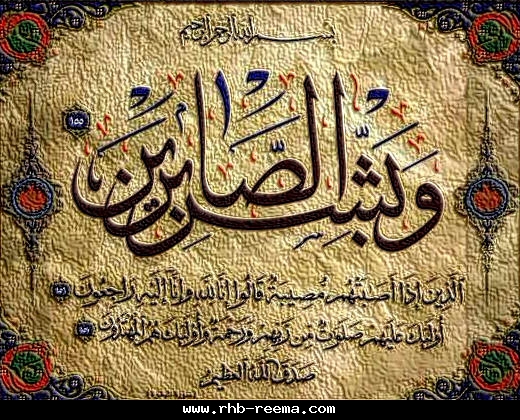 بسم الله الرحمن الرحيم
وَبَشِّرِ الصَّابِرِينَ ١٥٥
الَّذِينَ إِذَا أَصَابَتْهُم مُّصِيبَةٌ قَالُوا إِنَّا لِلَّهِ وَإِنَّا إِلَيْهِ رَاجِعُونَ ١٥٦
أُولَئِكَ عَلَيْهِمْ صَلَوَاتٌ مِّن رَّبِّهِمْ وَرَحْمَةٌ وَأُولَئِكَ هُمُ الْمُهْتَدُونَ ١٥٧
صدق الله العظيم
www.rhb-reema.com